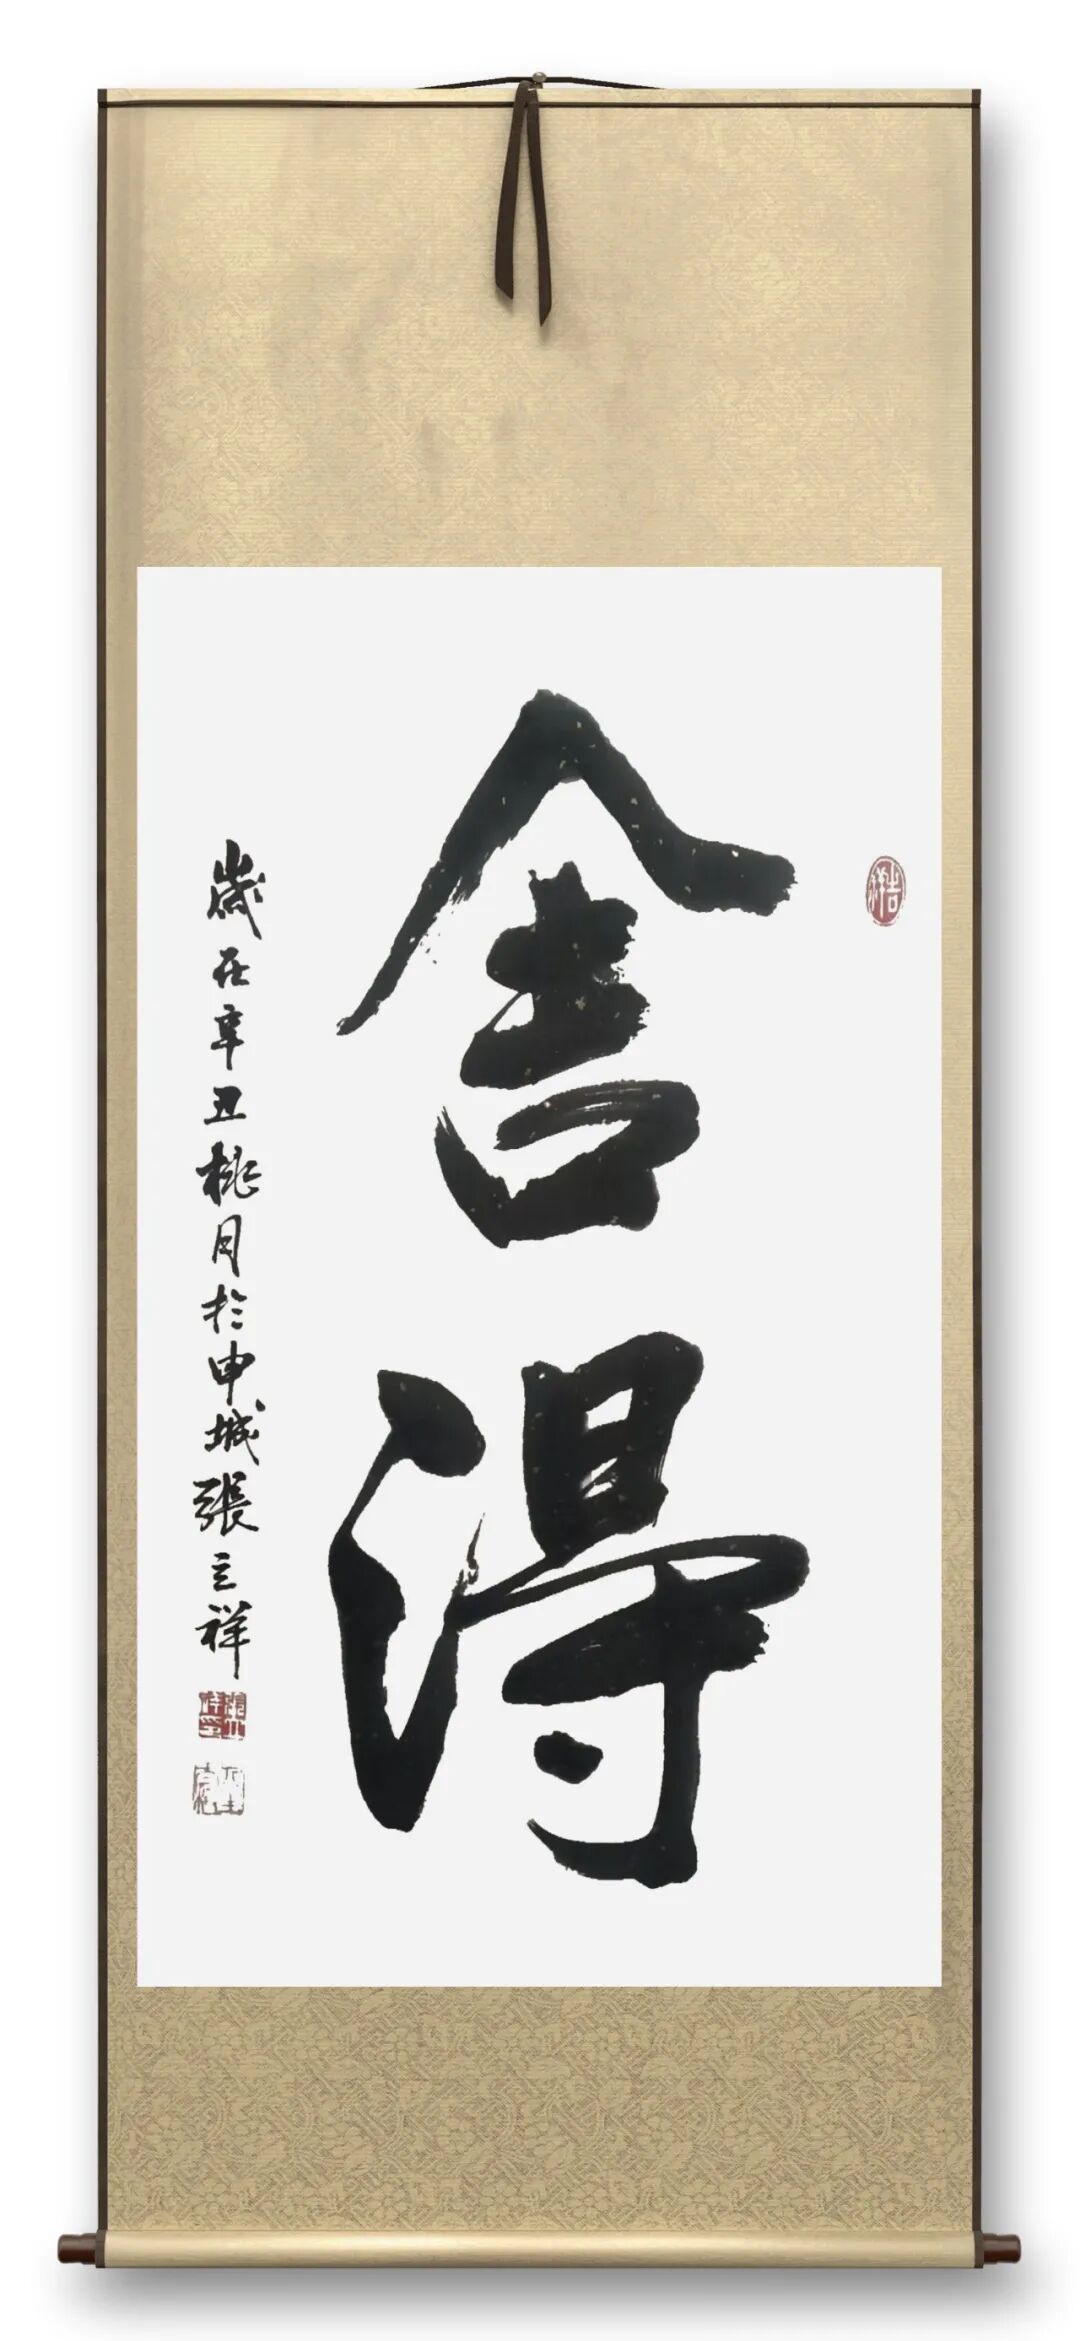 舍得
歲在辛丑桃月於申城張立祥
吉祥